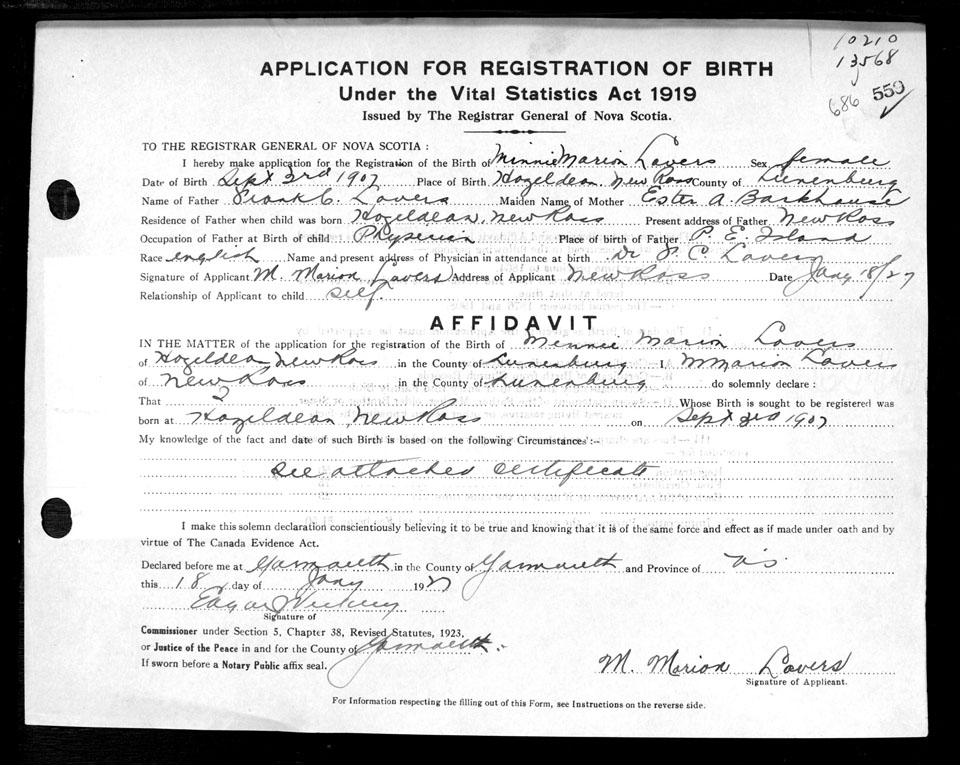 10210
13568
686 559
APPLICATION FOR REGISTRATION OF BIRTH
Under the Vital Statistics Act 1919
Issued by The Registrar General of Nova Scotia.
TO THE REGISTRAR GENERAL OF NOVA SCOTIA :
I hereby make application for the Registration of the Birth of Minnie Marion Lavers Sex female
Date of Birth Sept 3rd 1907 Place of Birth Hazeldean, New Ross County of Lunenburg
Name of Father Frank C. Lavers Maiden Name of Mother Ester A. Barkhouse
Residence of Father when child was born Hazeldean, New Ross Present address of Father New Ross
Occupation of Father at Birth of child Physician Place of Birth of Father P. E. Island
Race English Name and present address of Physician in attendance at birth Dr F. C. Lavers
Signature of Applicant M. Marion Lavers Address of Applicant New Ross Date Jany 18/27
Relationship of Applicant to child self.
AFFIDAVIT
IN THE MATTER of the application for the registration of the Birth of Minnie Marion Lavers
of Hazeldean New Ross in the County of Lunenburg I, M Marion Lavers
of New Ross in the County of Lunenburg do solemnly declare :
That I Whose Birth is sought to be registered was
born at Hazeldean, New Ross on Sept 3rd 1907
My knowledge of the fact and date of such Birth is based on the following Circumstances :—
See attached certificate
I make this solemn declaration conscientiously believing it to be true and knowing that it is of the same force and effect as if made under oath and by
virtue of The Canada Evidence Act.
Declared before me at Yarmouth in the County of Yarmouth and Province of NS
this 18 day of Jany 1927
Edgar
Signature of
Commissioner under Section 5, Chapter 38, Revised Statutes, 1923,
or Justice of the Peace in and for the County of Yarmouth.
If sworn before a Notary Public affix seal.
M. Marion Lavers
Signature of Applicant.
For Information respecting the filling out of this Form, see Instructions on the reverse side.